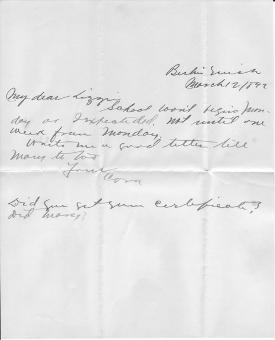 March 12/892
My dear Lizzie
School won't begin Mon-
day as I expected. not until one
week from Monday.
Write me a good letter tell
Mary to too
Your
Cora
Did you get your certificate?
Did Mary?